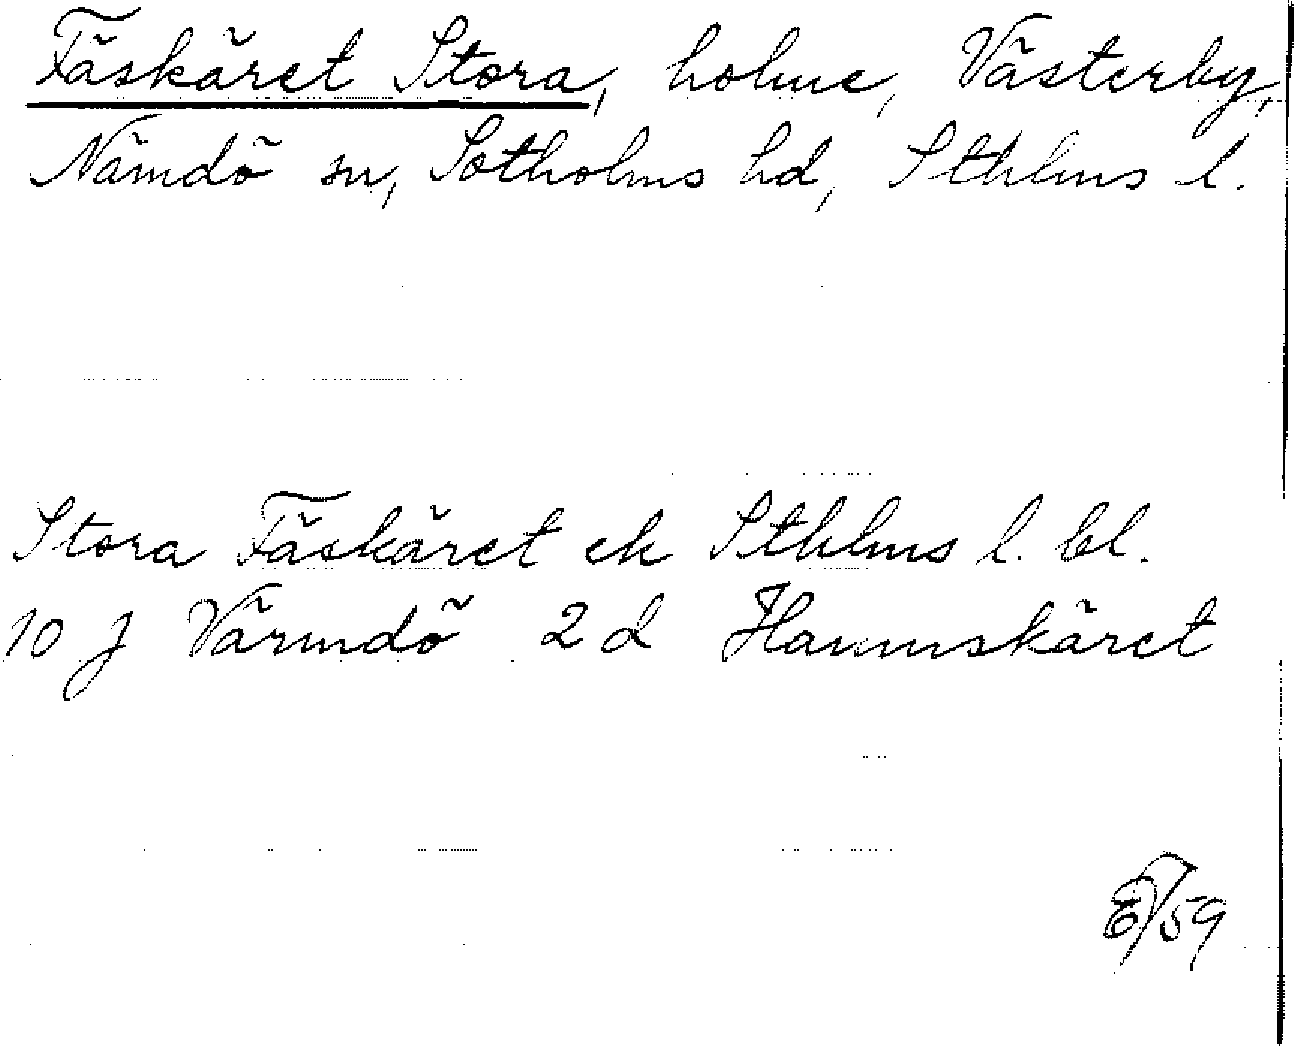 Fäskäret Stora, holme, Västerby,
Nämdö sn, Sotholms hd, Sthlms l.
Stora Fäskäret ek Sthlms l. bl.
10 J Värmdö 2 d Hamnskäret
/59